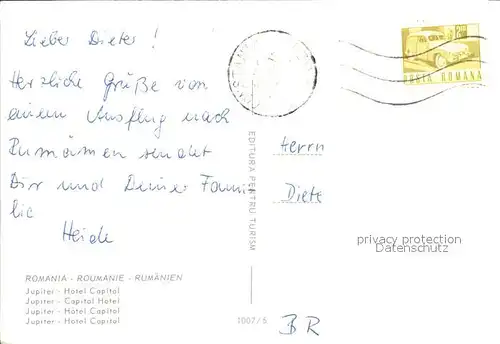 Lieber Dieter!
Herzliche Grüße von
einem Ausflug nach
Rumänien sendet
Dir und Deiner Fami-
lie
Heide
Herrn
Diete
BR
POSTA ROMANA
EDITURA PENTRU TURISM
privacy protection
Datenschutz
ROMANIA - ROUMANIE - RUMÄNIEN
Jupiter - Hotel Capitol
Jupiter - Capitol Hotel
Jupiter - Hotel Capitol
Jupiter - Hotel Capitol
1007/6